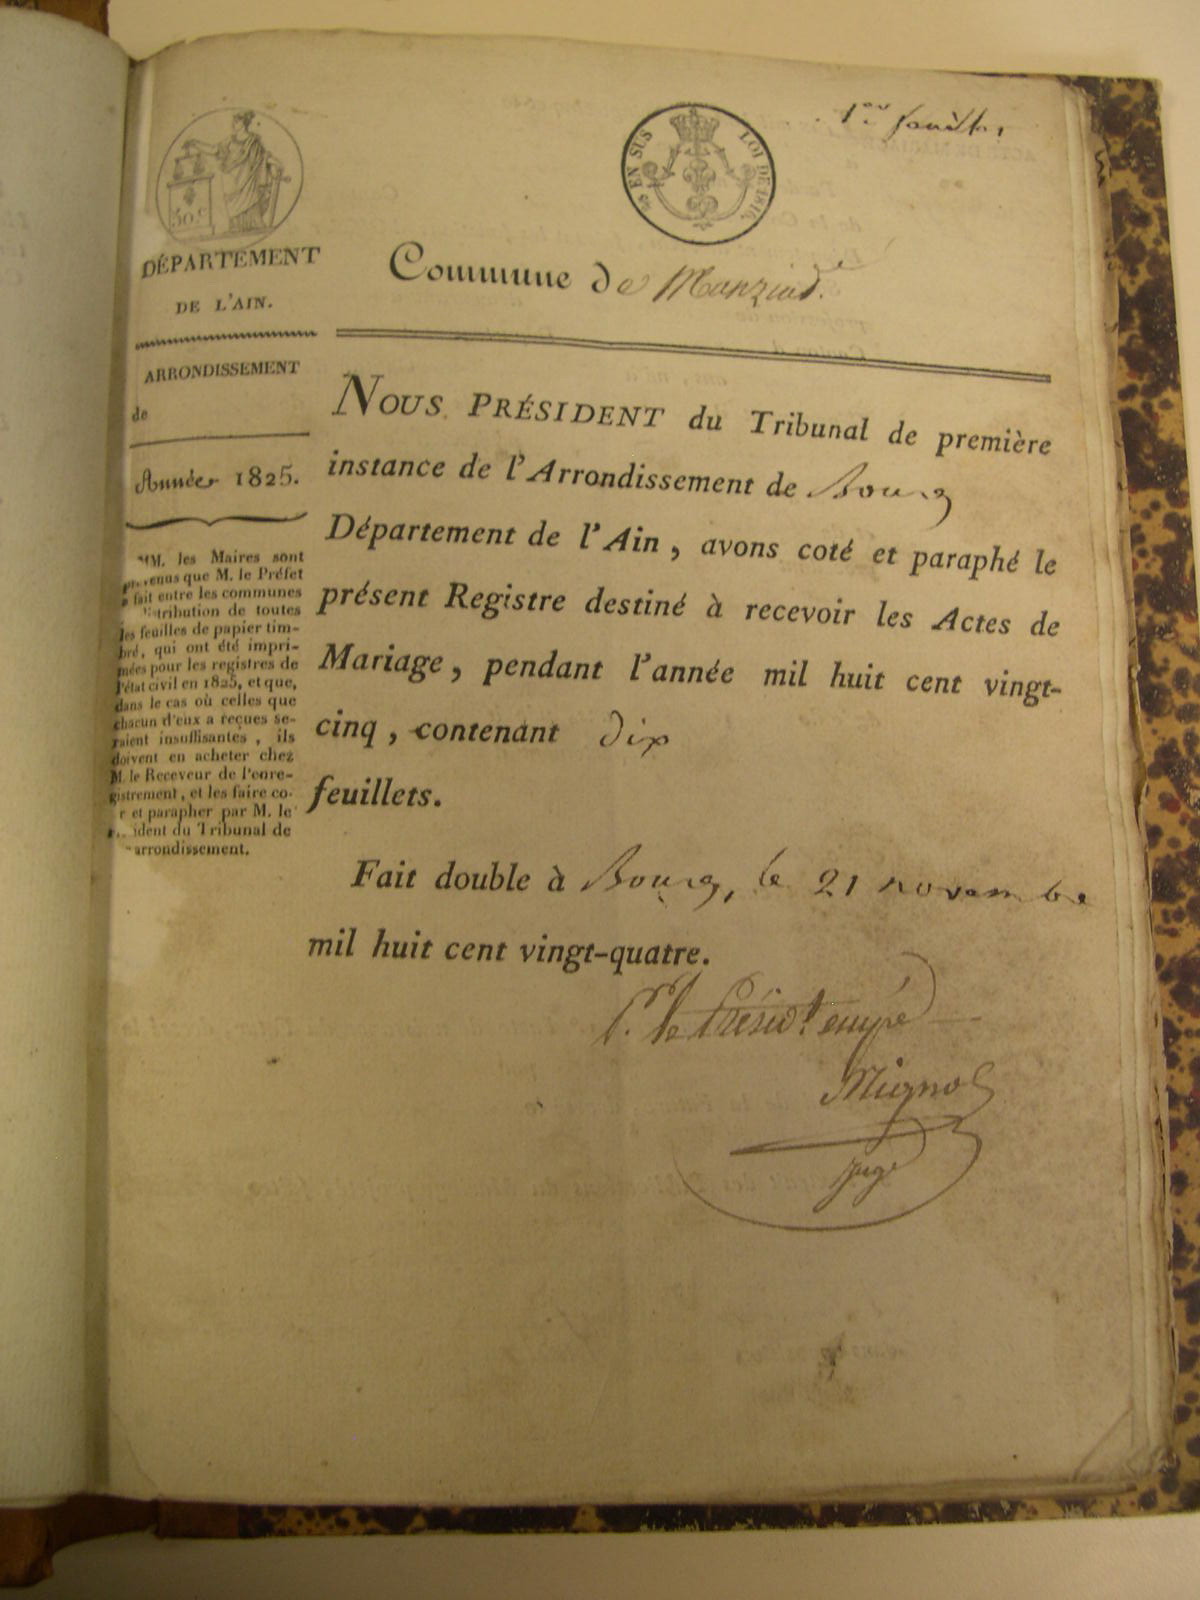 1er feuillet
30.c
EN SUS
LOI DE 1816.
DÉPARTEMENT
DE L'AIN.
Commune de Manziat
ARRONDISSEMENT
de
Année 1825.
MM. les Maires sont
prévenus que M. le Préfet
a fait entre les communes
distribution de toutes
les feuilles de papier tim-
bré, qui ont été impri-
mées pour les registres de
l'état civil en 1825, et que,
dans le cas où celles que
chacun d'eux a reçues se-
raient insuffisantes, ils
doivent en acheter chez
M. le Receveur de l'enre-
gistrement, et les faire co-
r et parapher par M. le
ident du Tribunal de
arrondissement.
NOUS PRÉSIDENT du Tribunal de première
instance de l'Arrondissement de Bourg
Département de l'Ain, avons coté et paraphé le
présent Registre destiné à recevoir les Actes de
Mariage, pendant l'année mil huit cent vingt-
cinq, contenant dix
feuillets.
Fait double à Bourg, le 21 novembre
mil huit cent vingt-quatre.
Pr. le Présidt. empé
Mignot
juge